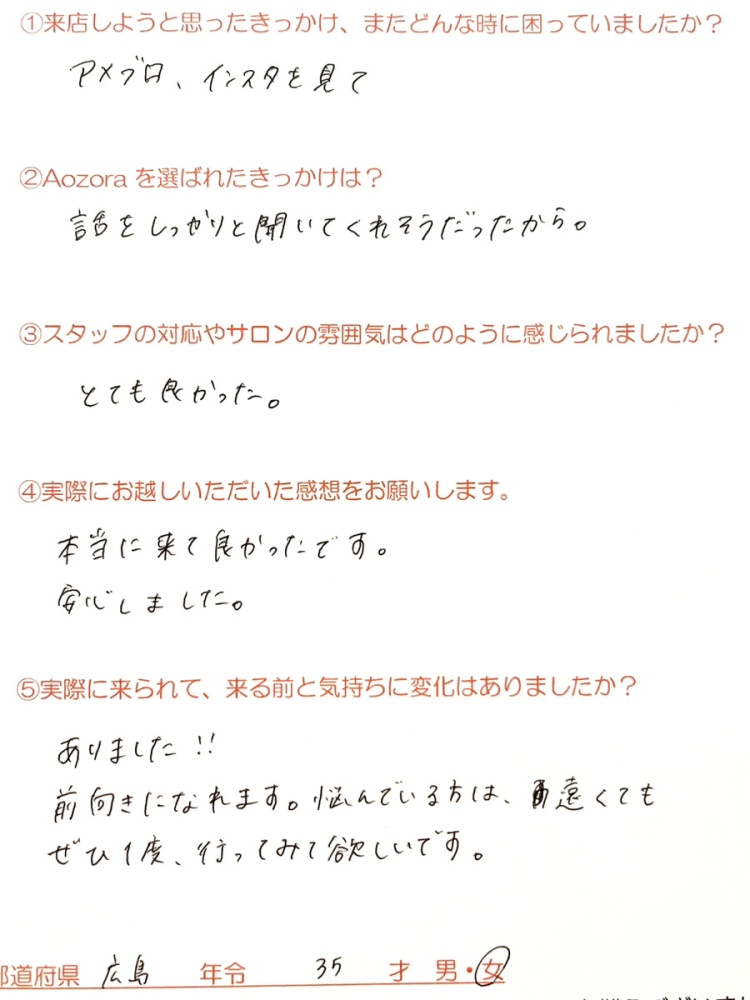 ①来店しようと思ったきっかけ、またどんな時に困っていましたか？
アメブロ、インスタを見て
②Aozora を選ばれたきっかけは？
話をしっかりと聞いてくれそうだったから。
③スタッフの対応やサロンの雰囲気はどのように感じられましたか？
とても良かった。
④実際にお越しいただいた感想をお願いします。
本当に来て良かったです。
安心しました。
⑤実際に来られて、来る前と気持ちに変化はありましたか？
ありました!!
前向きになれます。悩んでいる方は、遠くても
ぜひ1度、行ってみて欲しいです。
道府県 広島 年令 35 才 男・女